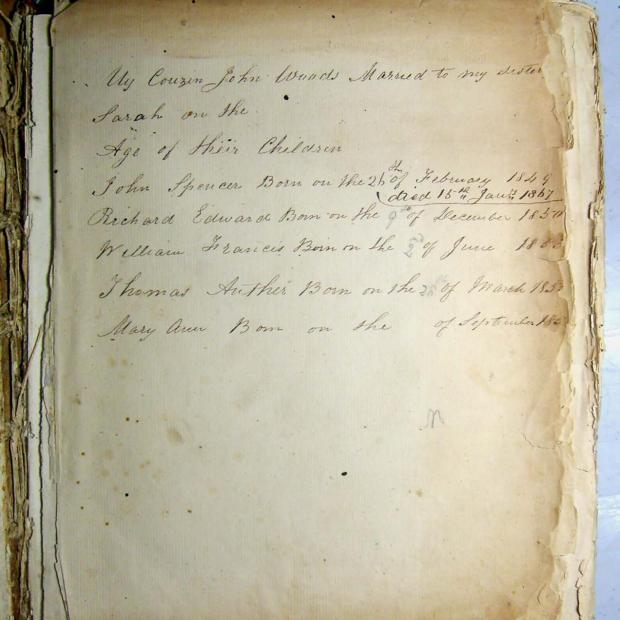 My Couzen John Woods Married to my sister
Sarah on the
Age of their Children
John Spencer Born on the 26th of February 1849
died 15th Jany. 1867
Richard Edward Born on the 9th of December 1850
William Francis Born on the 2d of June
Thomas Auther Born on the of March
Mary Ann Born on the of September
N